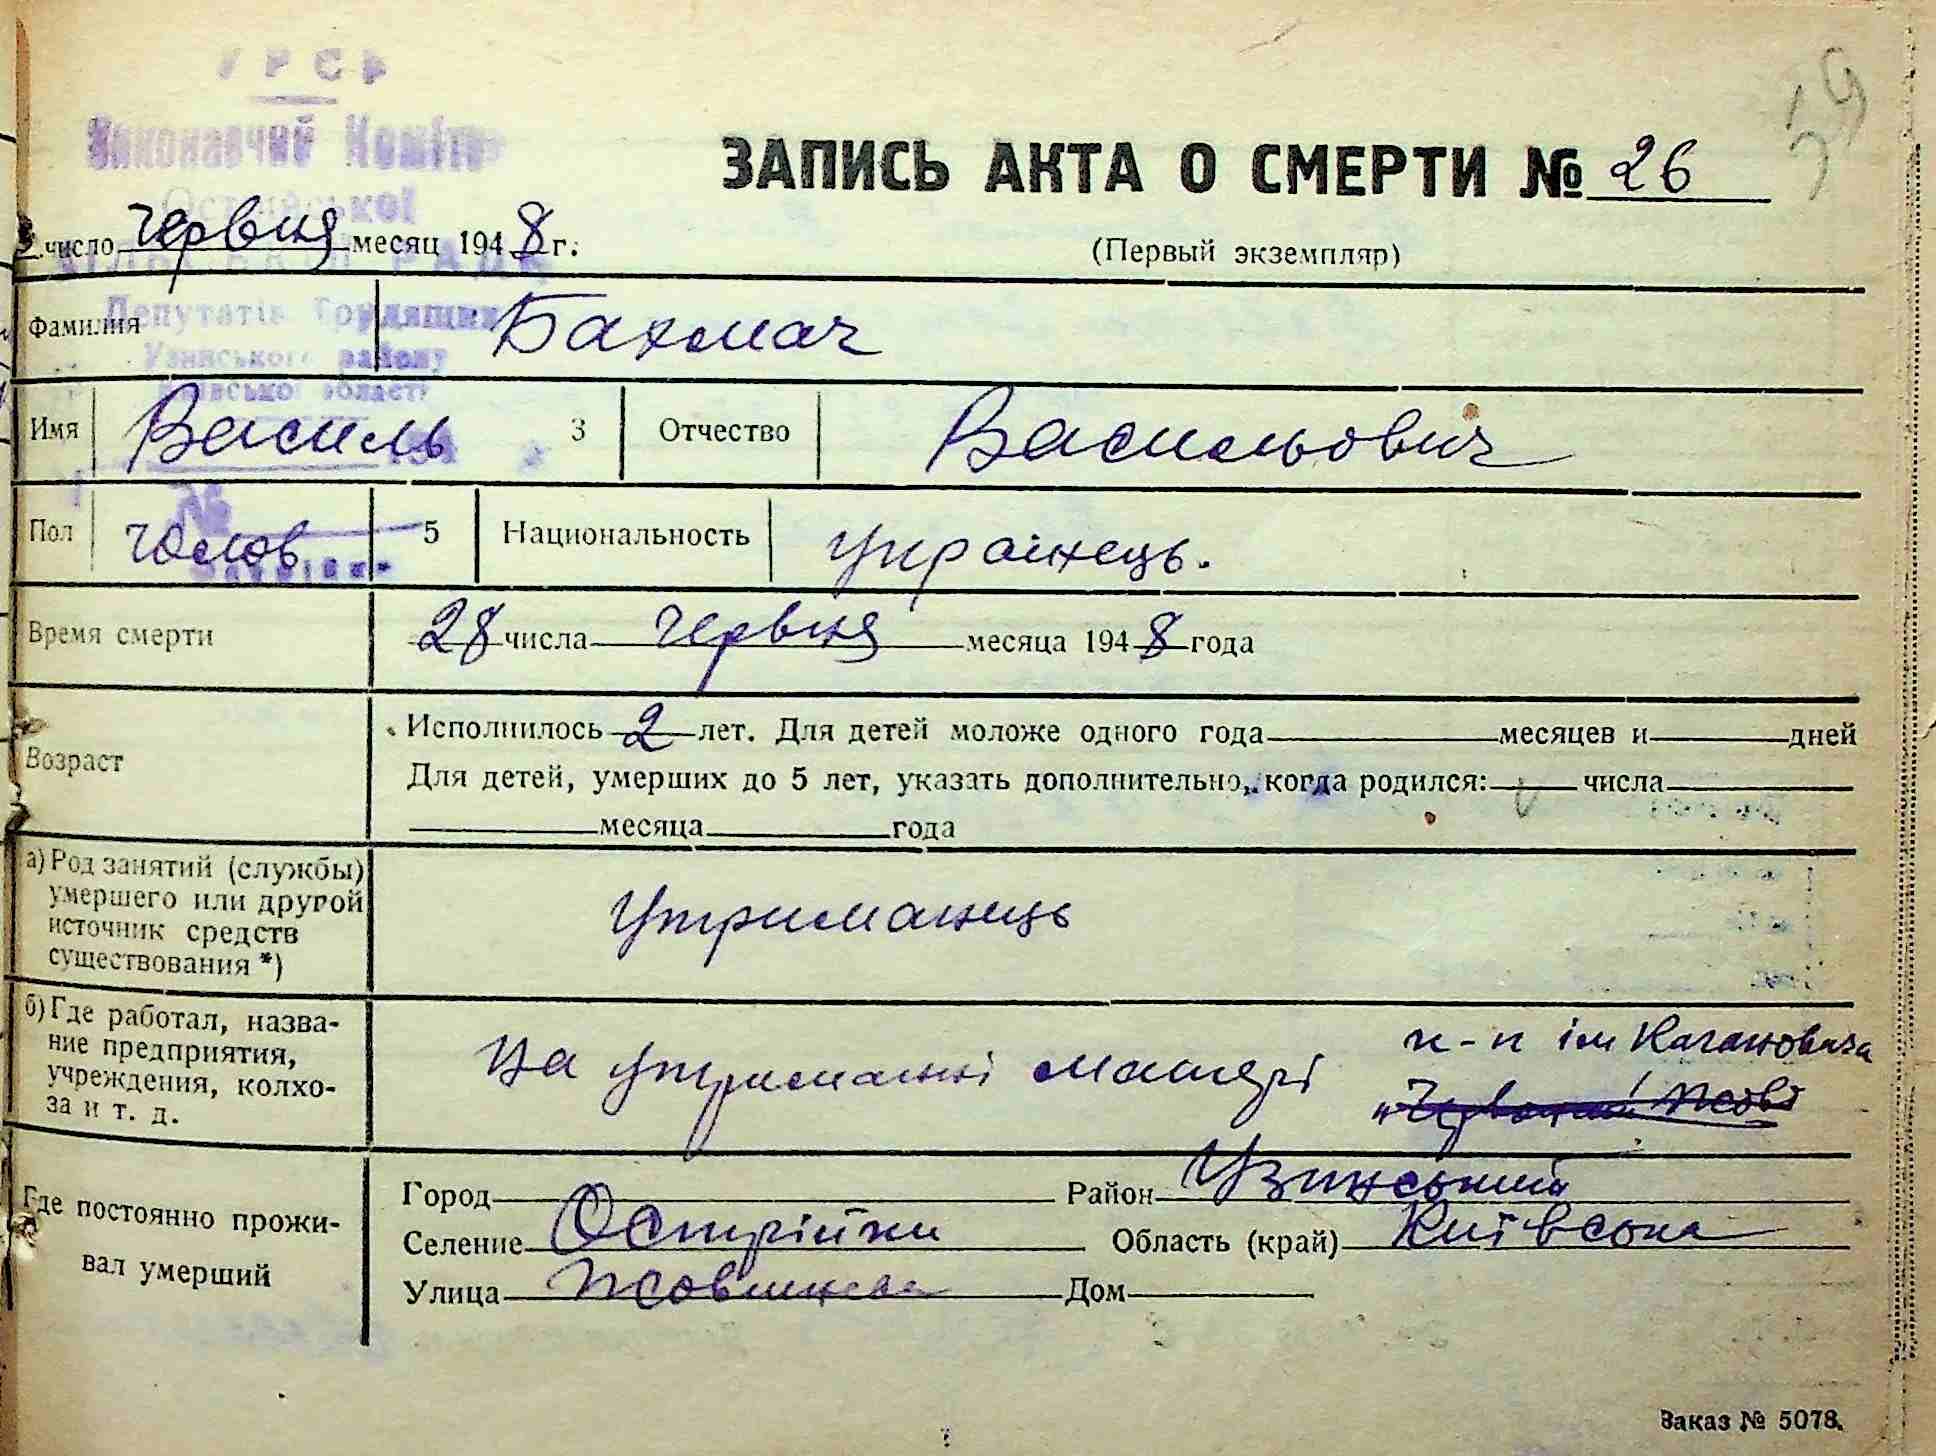 УРСР
59
Виконавчий Комітет
ЗАПИСЬ АКТА О СМЕРТИ № 26
Острійської
число червня месяц 1948 г.
(Первый экземпляр)
СІЛЬСЬКОЇ РАДИ
Депутатів Трудящих
Фамилия Бахмач
Узинського району
Київської області
Имя Василь 3 Отчество Васильович
194
№
Пол Чолов 5 Национальность українець.
Время смерти 28 числа червня месяца 1948 года
Возраст Исполнилось 2 лет. Для детей моложе одного года месяцев и дней
Для детей, умерших до 5 лет, указать дополнительно, когда родился: числа
месяца года
а) Род занятий (службы)
умершего или другой
источник средств
существования *)
Утриманець
б) Где работал, назва-
ние предприятия,
учреждения, колхо-
за и т. д.
На утриманні матері к-п ім Кагановича
"Червоний Жовт
Где постоянно прожи-
вал умерший
Город Район Узинський
Селение Острійки Область (край) Київська
Улица Жовтнева Дом
Заказ № 5078.